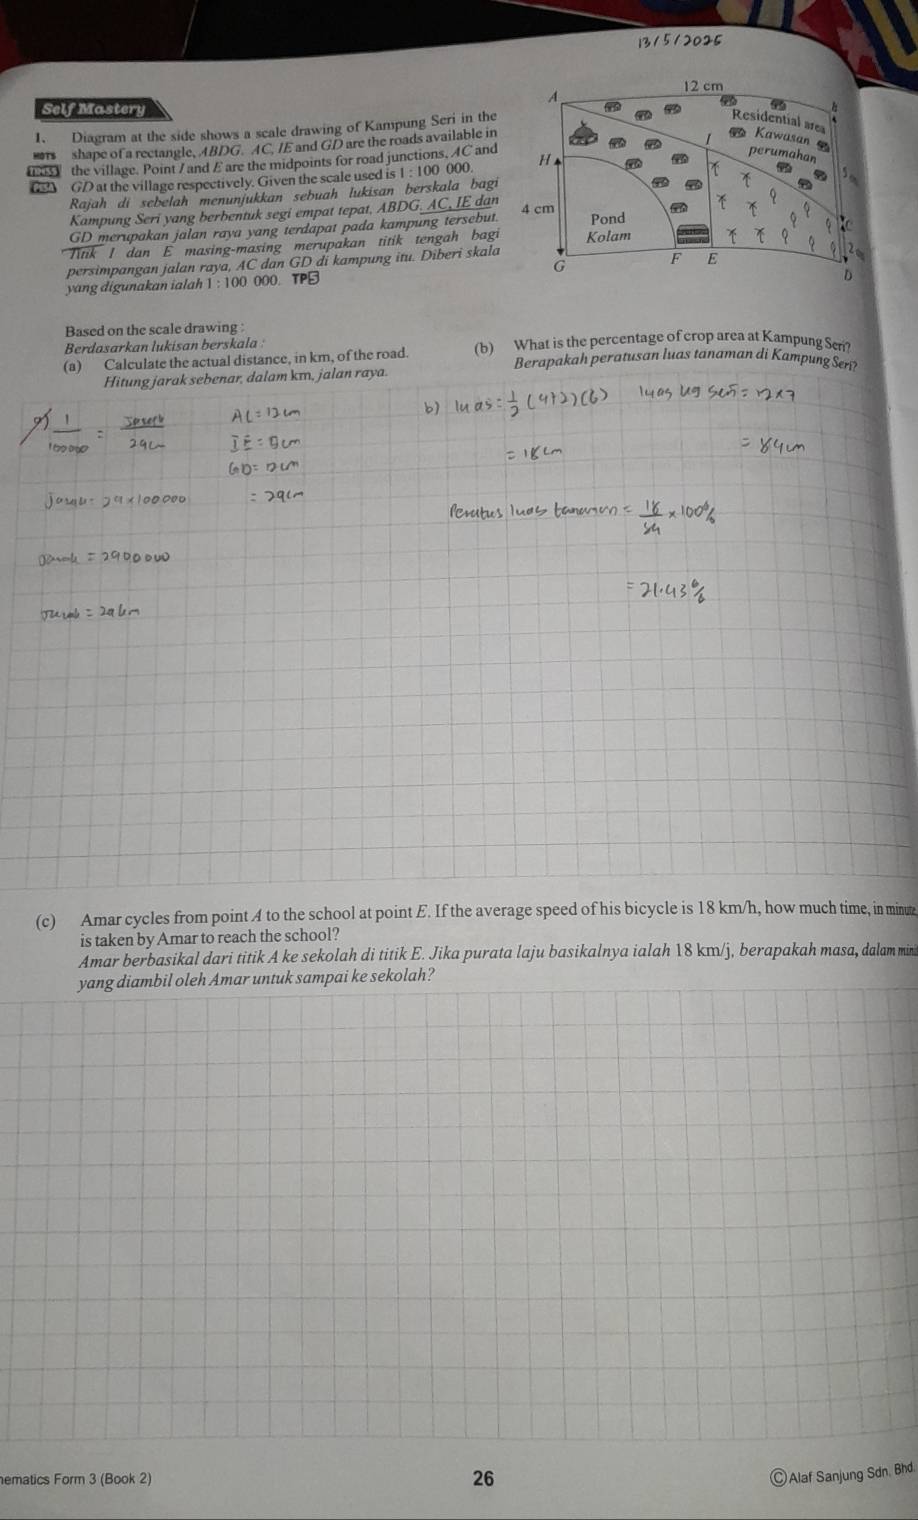 13/5/2025
Self Mastery
1. Diagram at the side shows a scale drawing of Kampung Seri in the
HOTS shape of a rectangle, ABDG. AC, IE and GD are the roads available in
TIMSS the village. Point I and E are the midpoints for road junctions, AC and
PISA GD at the village respectively. Given the scale used is 1 : 100 000.
Rajah di sebelah menunjukkan sebuah lukisan berskala bagi
Kampung Seri yang berbentuk segi empat tepat, ABDG. AC, IE dan
GD merupakan jalan raya yang terdapat pada kampung tersebut.
Titik I dan E masing-masing merupakan titik tengah bagi
persimpangan jalan raya, AC dan GD di kampung itu. Diberi skala
yang digunakan ialah 1 : 100 000. TP5
12 cm
A
Residential area
Kawasan
perumahan
I
H
5
4 cm
Pond
Kolam
C
2 cm
G
F E
D
Based on the scale drawing :
Berdasarkan lukisan berskala :
(a) Calculate the actual distance, in km, of the road.
Hitung jarak sebenar, dalam km, jalan raya.
(b) What is the percentage of crop area at Kampung Seri?
Berapakah peratusan luas tanaman di Kampung Seri?
1/100000 = /29cm
AC = 13 cm
IE = 5 cm
GD = 12 cm
= 29cm
= 29 × 100000
= 2900000
= 29km
b) luas = 1/2 (4+2)(6)
= 18cm
luas kg seri = 12 × 7
= 84cm
Peratus luas tanaman = 18/84 × 100%
= 21.43%
(c) Amar cycles from point A to the school at point E. If the average speed of his bicycle is 18 km/h, how much time, in minute
is taken by Amar to reach the school?
Amar berbasikal dari titik A ke sekolah di titik E. Jika purata laju basikalnya ialah 18 km/j, berapakah masa, dalam min
yang diambil oleh Amar untuk sampai ke sekolah?
hematics Form 3 (Book 2)
26
© Alaf Sanjung Sdn. Bhd.